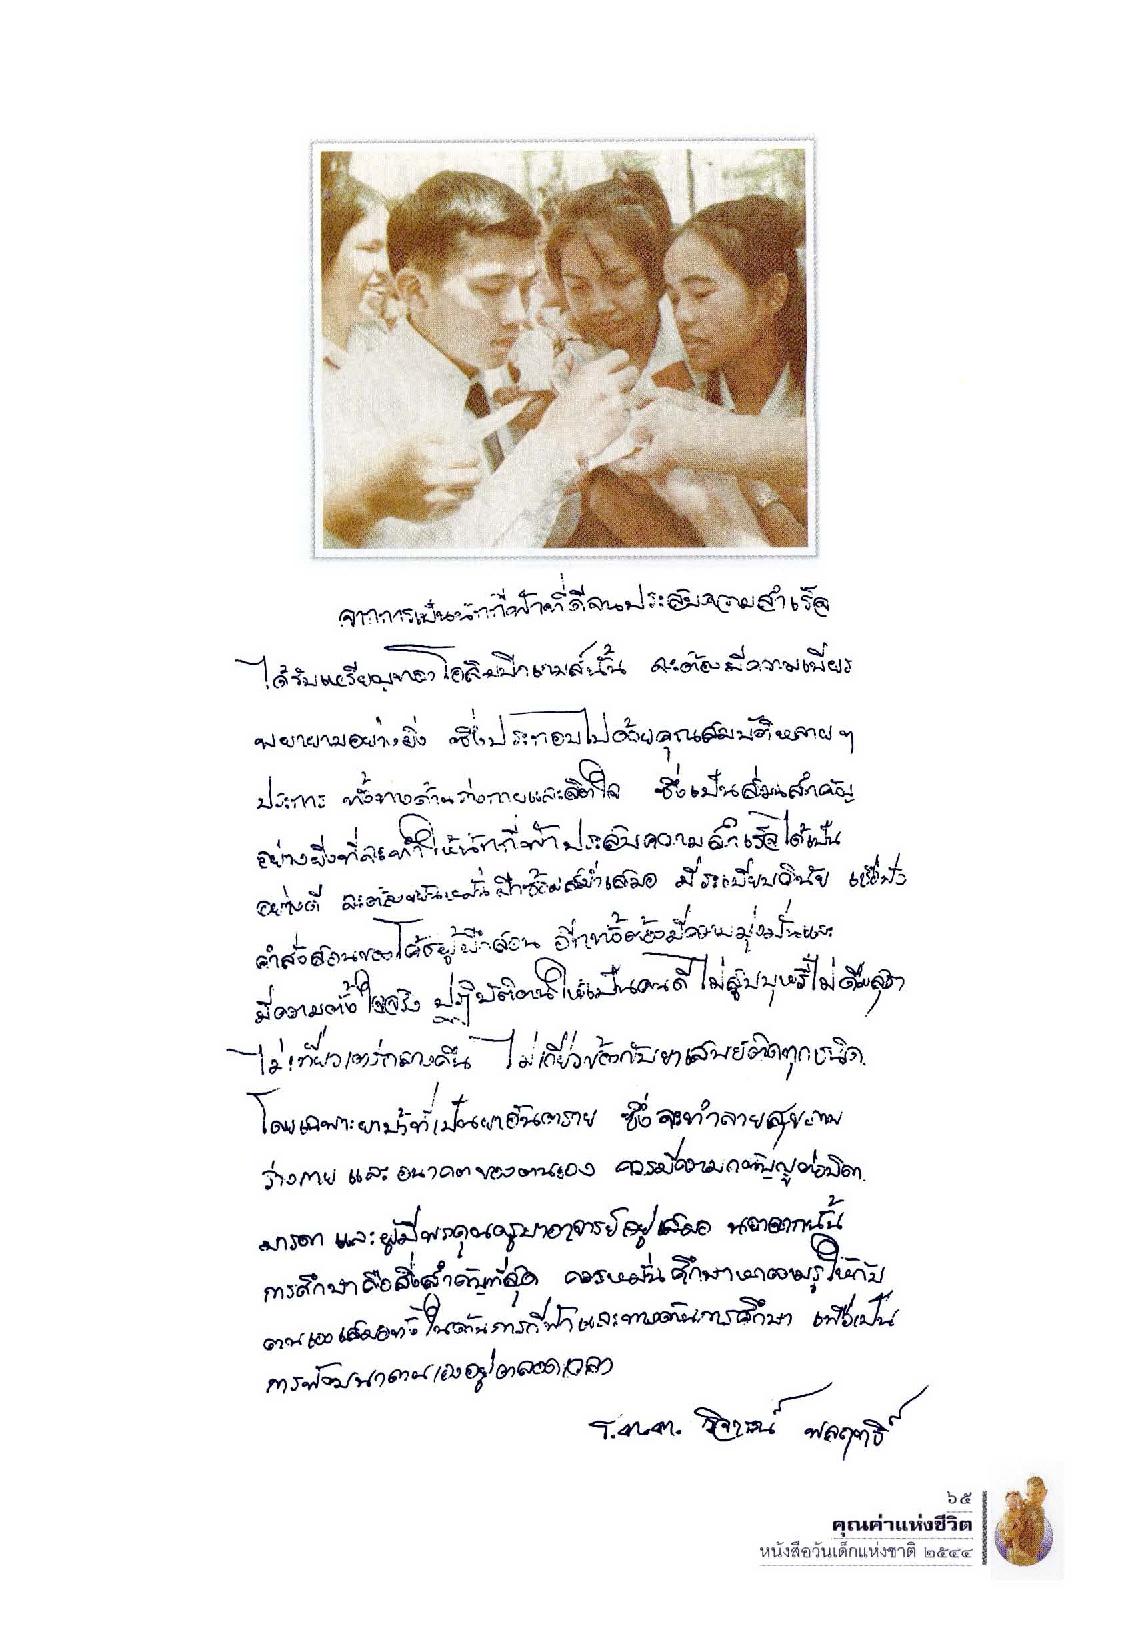 จากการเป็นนักกีฬาที่ดีจนประสบความสำเร็จ
ได้รับเหรียญทองโอลิมปิกเกมส์นั้น จะต้องมีความเพียร
พยายามอย่างยิ่ง ซึ่งประกอบไปด้วยคุณสมบัติหลายๆ
ประการ ทั้งทางด้านร่างกายและจิตใจ ซึ่งเป็นส่วนสำคัญ
อย่างยิ่งที่จะทำให้นักกีฬาประสบความสำเร็จได้เป็น
อย่างดี จะต้องขยันหมั่นฝึกซ้อมสม่ำเสมอ มีระเบียบวินัย เชื่อฟัง
คำสั่งสอนของโค้ชผู้ฝึกสอน อีกทั้งต้องมีความมุ่งมั่นและ
มีความตั้งใจจริง ปฏิบัติตนให้เป็นคนดี ไม่สูบบุหรี่ไม่ดื่มสุรา
ไม่เที่ยวเตร่กลางคืน ไม่เกี่ยวข้องกับยาเสพย์ติดทุกชนิด
โดยเฉพาะยาบ้าที่เป็นยาอันตราย ซึ่งจะทำลายสุขภาพ
ร่างกาย และ อนาคตของตนเอง ควรมีความกตัญญูต่อบิดา
มารดา และผู้มีพระคุณครูบาอาจารย์อยู่เสมอ นอกจากนั้น
การศึกษาคือสิ่งสำคัญที่สุด ควรหมั่นศึกษาหาความรู้ให้กับ
ตนเองเสมอทั้งในด้านการกีฬาและทางด้านการศึกษา เพื่อเป็น
การพัฒนาตนเองอยู่ตลอดเวลา
ร.ต.ต. วิจารณ์ พลฤทธิ์
๖๕
คุณค่าแห่งชีวิต
หนังสือวันเด็กแห่งชาติ ๒๕๔๔